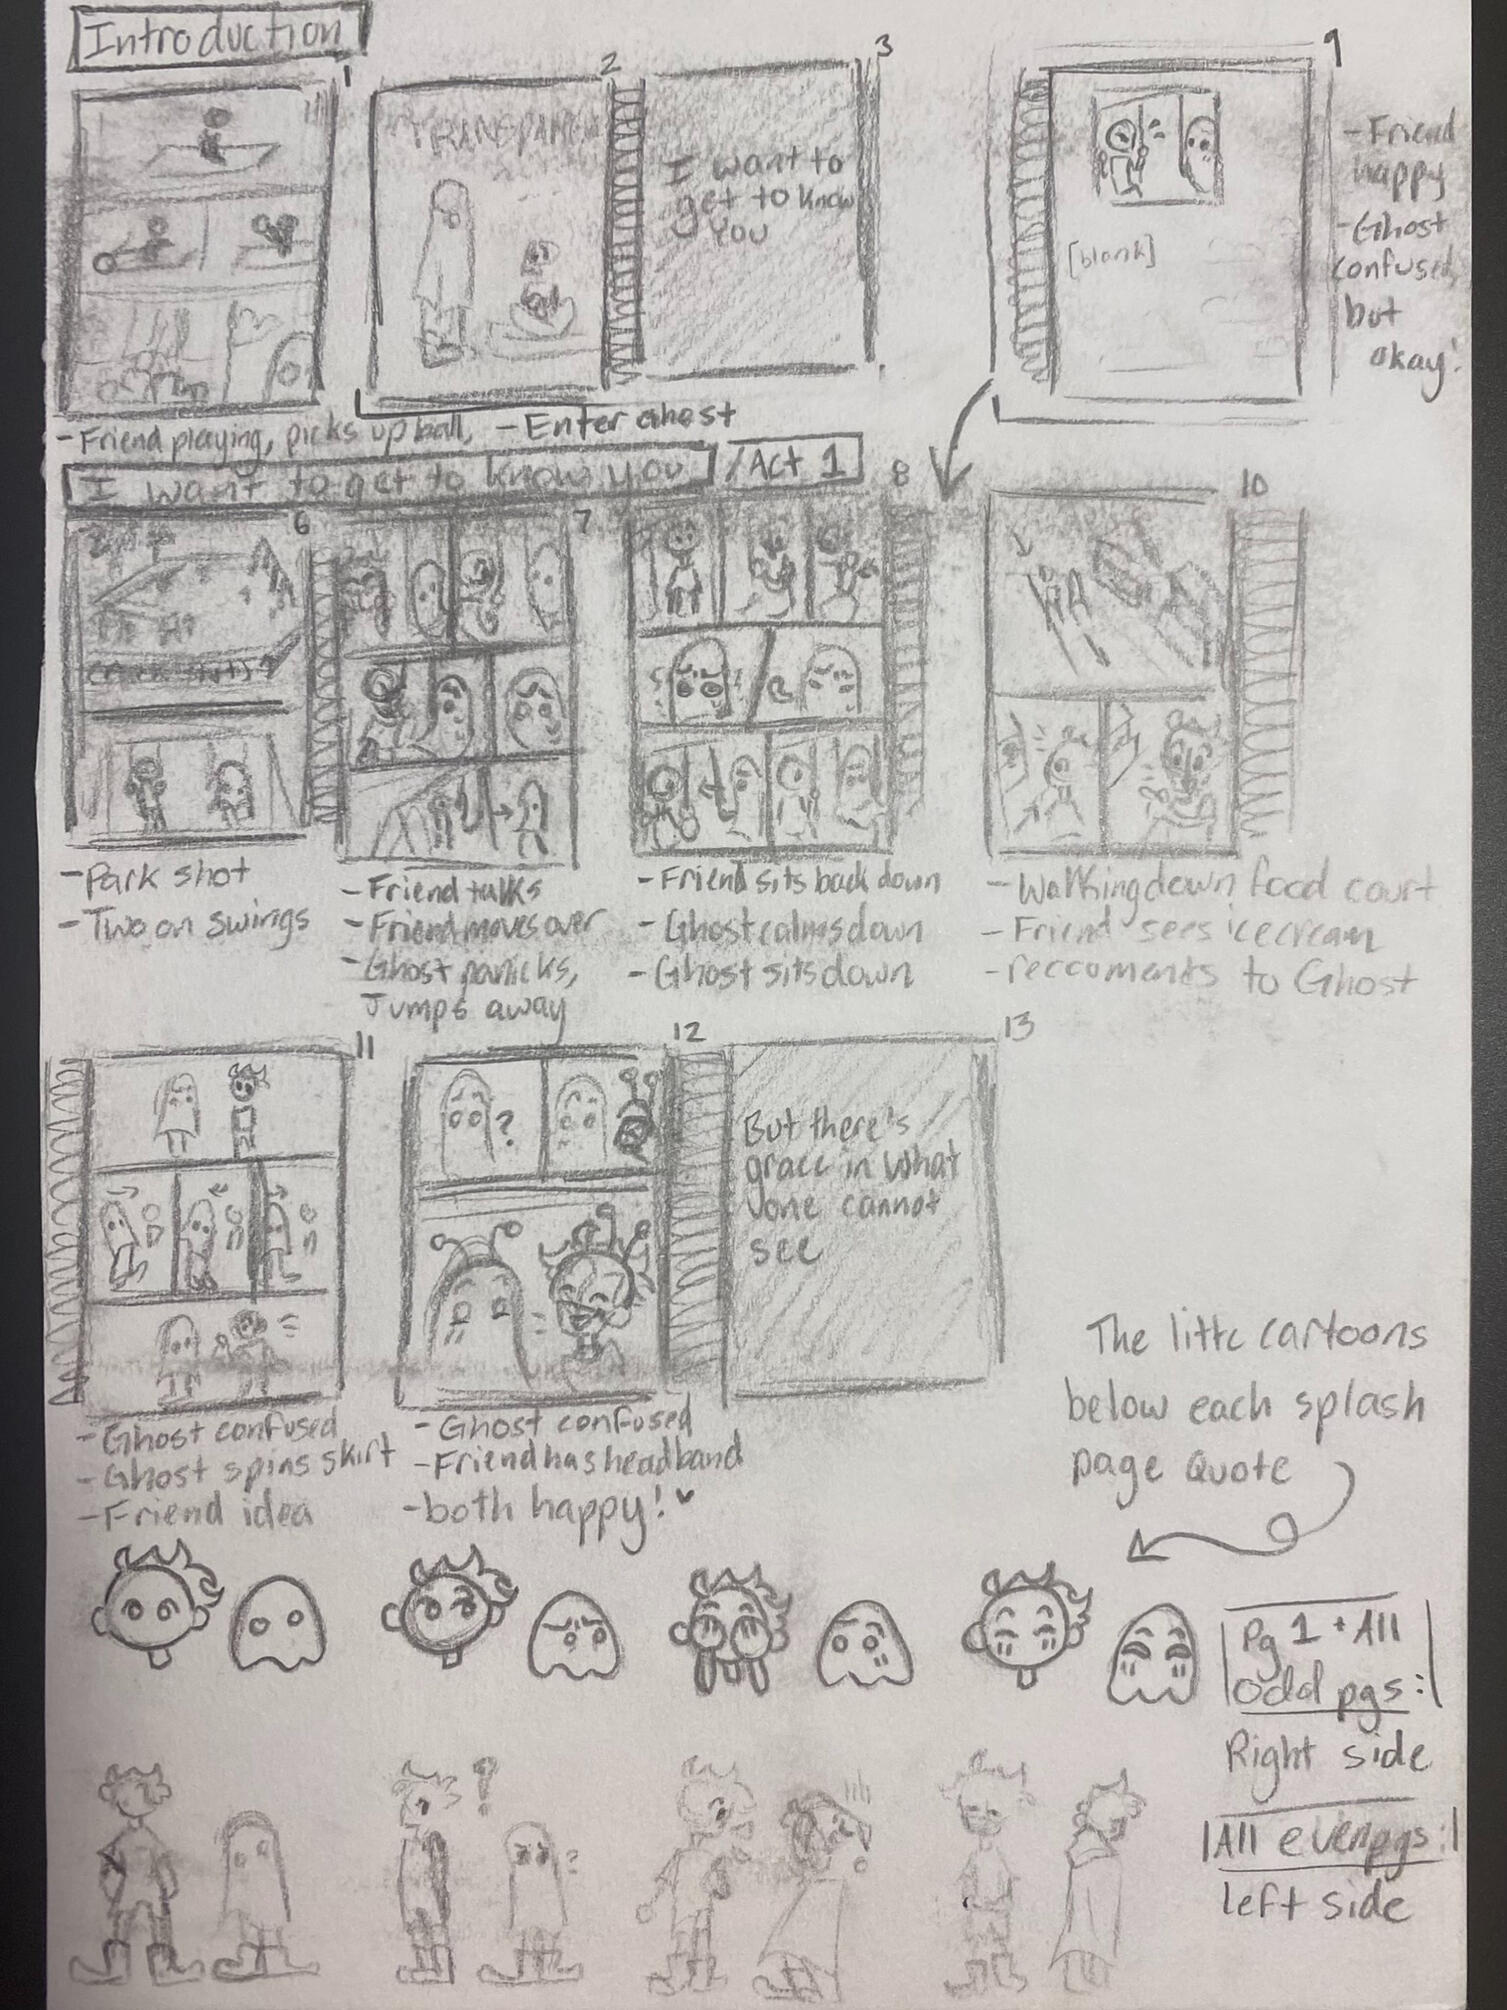 Introduction
1
2
3
9
I want to
get to know
you
[blank]
- Friend
happy
- Ghost
confused,
but
okay!
- Friend playing, picks up ball,
- Enter Ghost
I want to get to know you
/Act 1
6
7
8
10
- Park shot
- Two on swings
- Friend talks
- Friend moves over
- Ghost panicks,
Jumps away
- Friend sits back down
- Ghost calms down
- Ghost sits down
- Walking down food court
- Friend sees icecream
- reccoments to Ghost
11
12
13
?
But there's
grace in what
one cannot
see
- Ghost confused
- Ghost spins skirt
- Friend idea
- Ghost confused
- Friend has headband
- both happy! ♥
The littc cartoons
below each splash
page quote
Pg 1 + All
odd pgs:
Right side
All even pgs:
left side
?
?